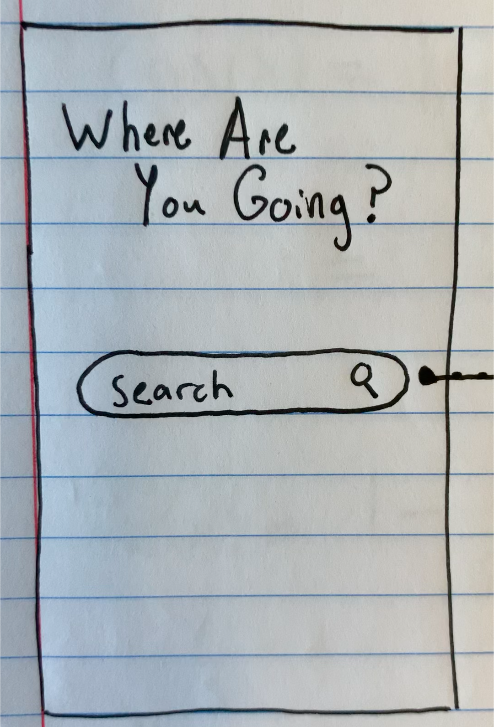 Where Are
You Going?
Search